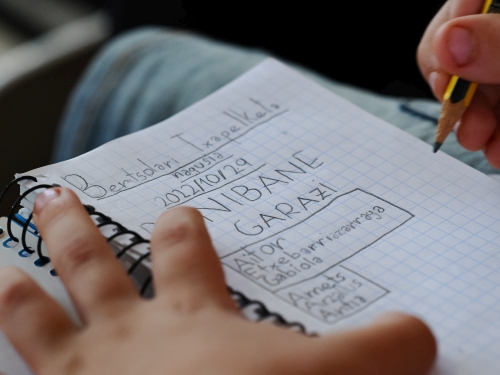 Bertsolari Txapelketa
nagusia
2022/10/29
DONIBANE
GARAZI
Aitor
Etxebarriazarraga
Gabiola
Amets
Arzalus
Antia